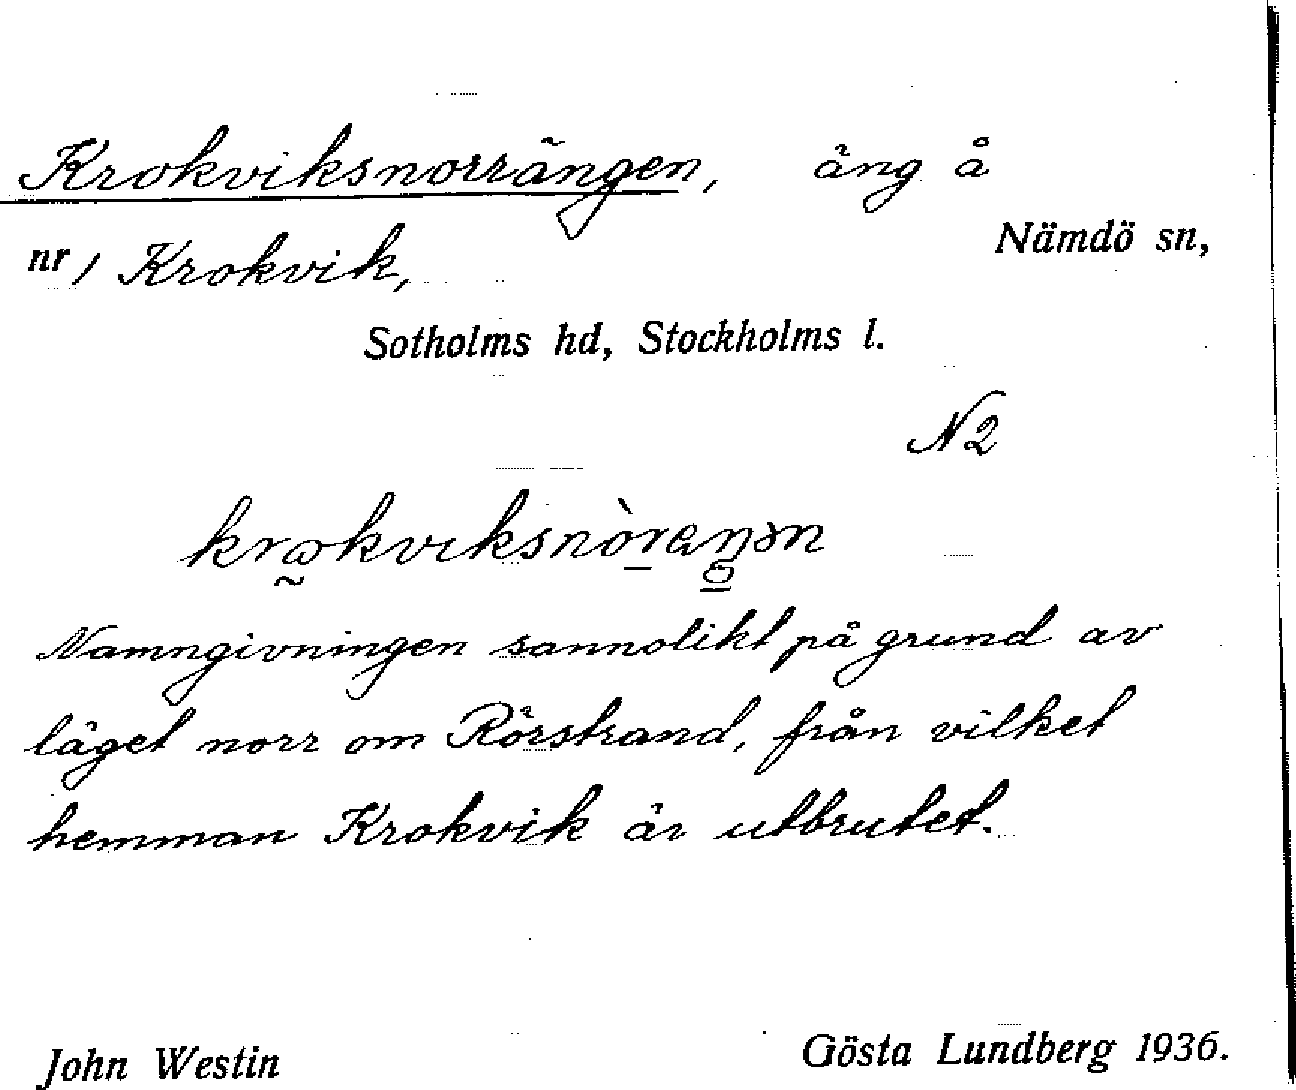 Krokviksnorrängen, äng å
Nämdö sn,
nr 1 Krokvik,
Sotholms hd, Stockholms l.
N2
Namngivningen sannolikt på grund av
läget norr om Rörstrand, från vilket
hemman Krokvik är utbrutet.
John Westin Gösta Lundberg 1936.